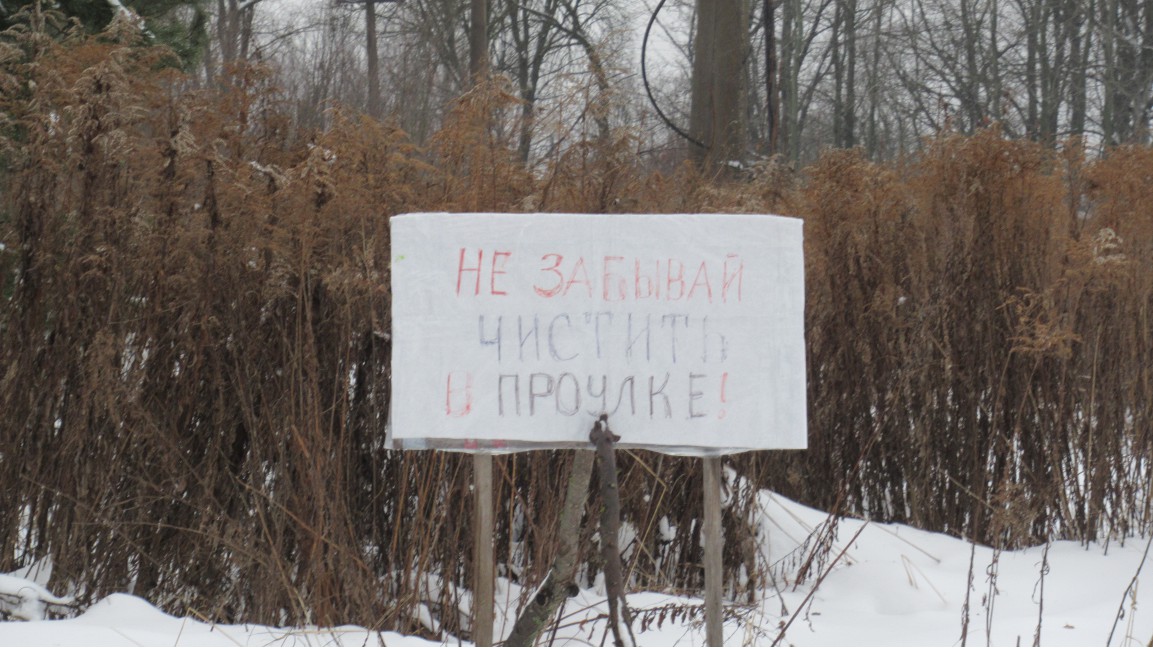 НЕ ЗАБЫВАЙ
ЧИСТИТЬ
В ПРОУЛКЕ!